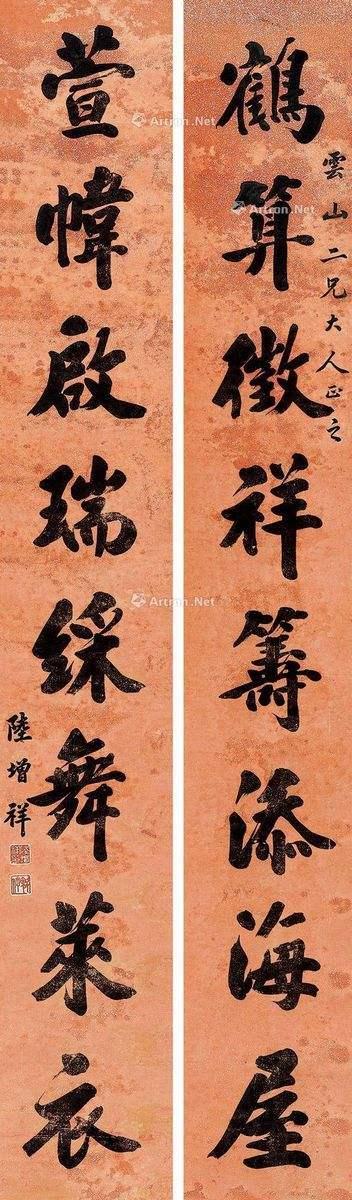 雲山二兄大人正之
鶴算徵祥籌添海屋
萱幃啟瑞綵舞萊衣
陸增祥
Artron.Net
Artron.Net
Artron.Net
Artron.Net
Artron.Net
Artron.Net